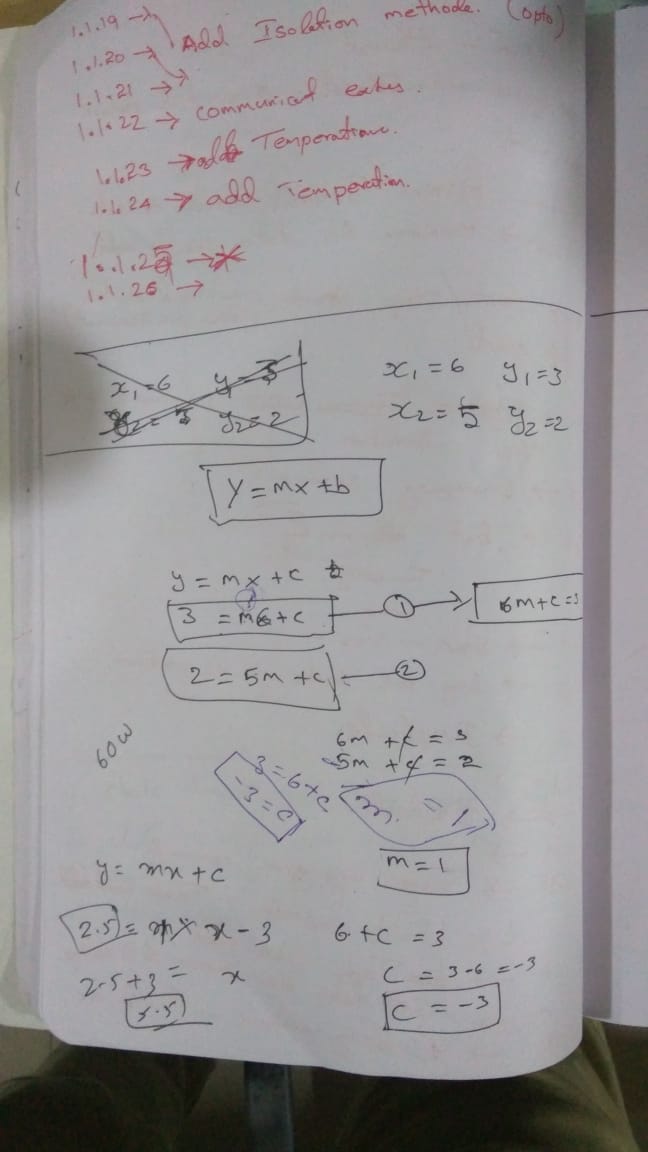 1.1.19 →
1.1.20 → Add Isolation methode. (opto)
1.1.21 →
1.1.22 → communicat
1.1.23 → add Temperature.
1.1.24 → add Temperation.
1.1.25 →
1.1.26 →
x₁ = 6 y₁ = 3
y₂ = 2
x₁ = 6 y₁ = 3
x₂ = 5 y₂ = 2
Y = mx + b
y = mx + c
3 = m6 + c ① → 6m + c = 3
2 = 5m + c ②
60W
6m + c = 3
5m + c = 2
3 = 6 + c
-3 = c
m = 1
m = 1
y = mx + c
2.5 = x - 3
6 + c = 3
2.5 + 3 = x
c = 3 - 6 = -3
5.5
c = -3